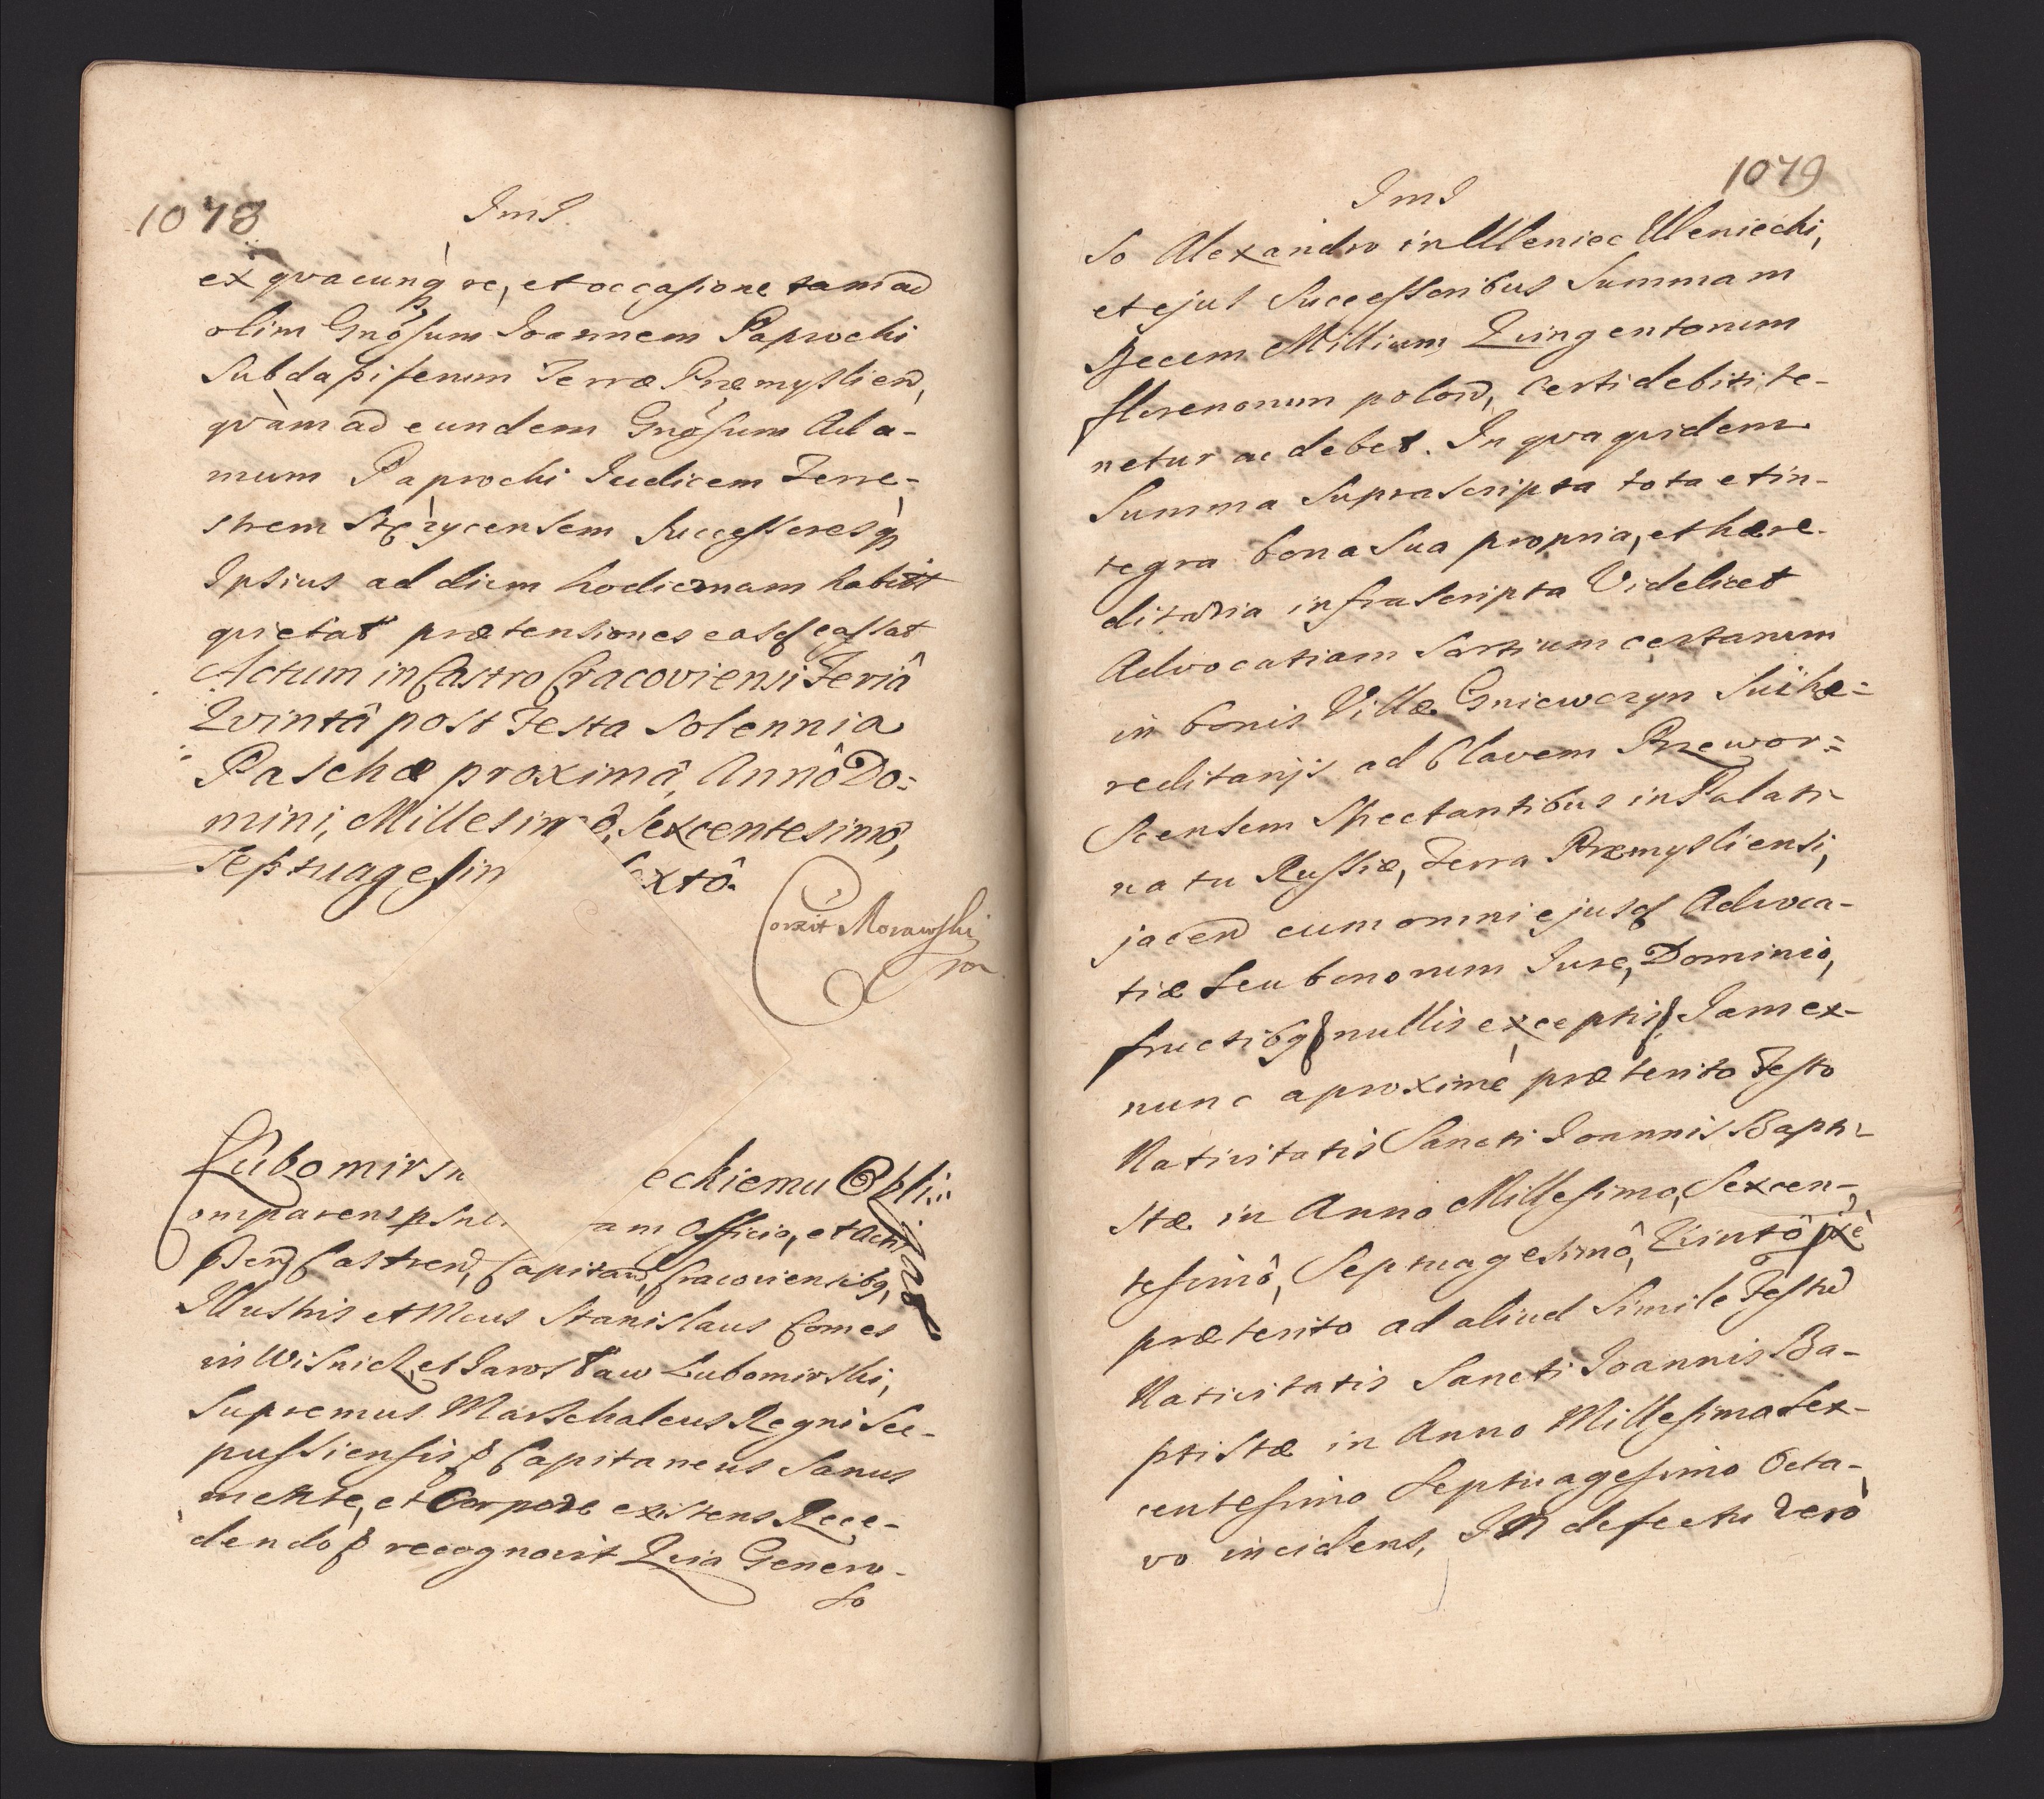 1078
JmJ
ex qvacunq̀ re, et occasione tam ad
olim Gnősum Joannem Paprocki
Subdapiferum Terræ Præmyslien̄,
qvàm ad eundem Gnősum Ada-
mum Paprocki Judicem Terre-
strem Successoresq̀
Ipsius ad diem hodiernam habuit
quietat prætensiones easq̀ cassat
Actum in Castro Cracoviensi Feriâ
Qvintâ post Festa Solennia
Paschæ proximâ, Annô Do=
mini, Millesimô, Sexcentesimô,
Septuagesim extô.
Corrxit Morawski
mr
Lubomirs eckiemu Obli=
gat
Comparens psnl. am Officio, et Actis
Castren̄, Capitan̄, Cracoviensibq,
Illustris et Mcus Stanislaus Comes
in Wisnicz, et Jarosław Lubomirski,
Supremus Marschalcus Regni Sce-
pussiensis & Capitaneus Sanus
mente, et Corpore existens Rece-
dendo & recognovit Qvia Genero-
so
1079
JmJ
so Alexandro in Uleniec Uleniecki,
et ejus Successoribus Summam
Decem Millium Quingentorum
florenorum polon̄, certi debiti te-
netur ac debet. In qva quidem
Summa supra scripta tota et in-
tegra bona sua propria, et hære-
ditaria infrascripta Videlicet
Advocatiam Sortium certarum
in bonis Villæ Gniewczyn Sui hæ=
reditarijs ad Clavem Przewor=
scensem Spectantibus in Palati-
natu Russiæ, Terra Præmysliensi,
jacen̄ cum omni ejusq̀ Advoca-
tiæ seu bonorum Jure, Dominio,
fructibq & nullis exceptis, Jam ex-
nunc a proximè præterito Festo
Nativitatis Sancti Joannis Bapti-
stæ in Anno Millesimo, Sexcen-
tesimô, Septuagesimô, Qvintô pxè
præterito ad aliud Simile Festū
Nativitatis Sancti Joannis Ba-
ptistæ in Anno Millesimo Sex-
centesimo Septuagesimo Octa-
vo incidens, In defectu vero